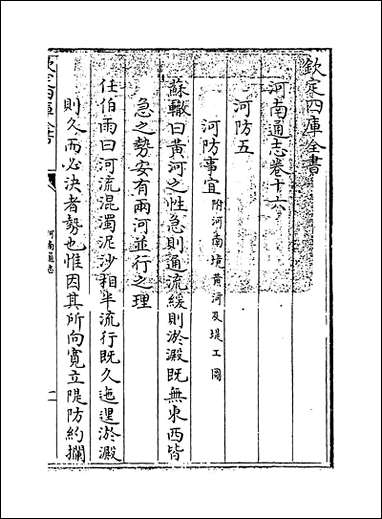 欽定四庫全書
河南通志卷十六
河防五
河防事宜附河南境黄河及堤工圖
蘇轍曰黄河之性急則通流緩則淤澱既無東西皆
急之勢安有兩河並行之理
任伯雨曰河流混濁泥沙相半流行既久迤邐淤澱
則久而必決者勢也惟因其所向寛立隄防約攔
欽定四庫全書
河南通志
一